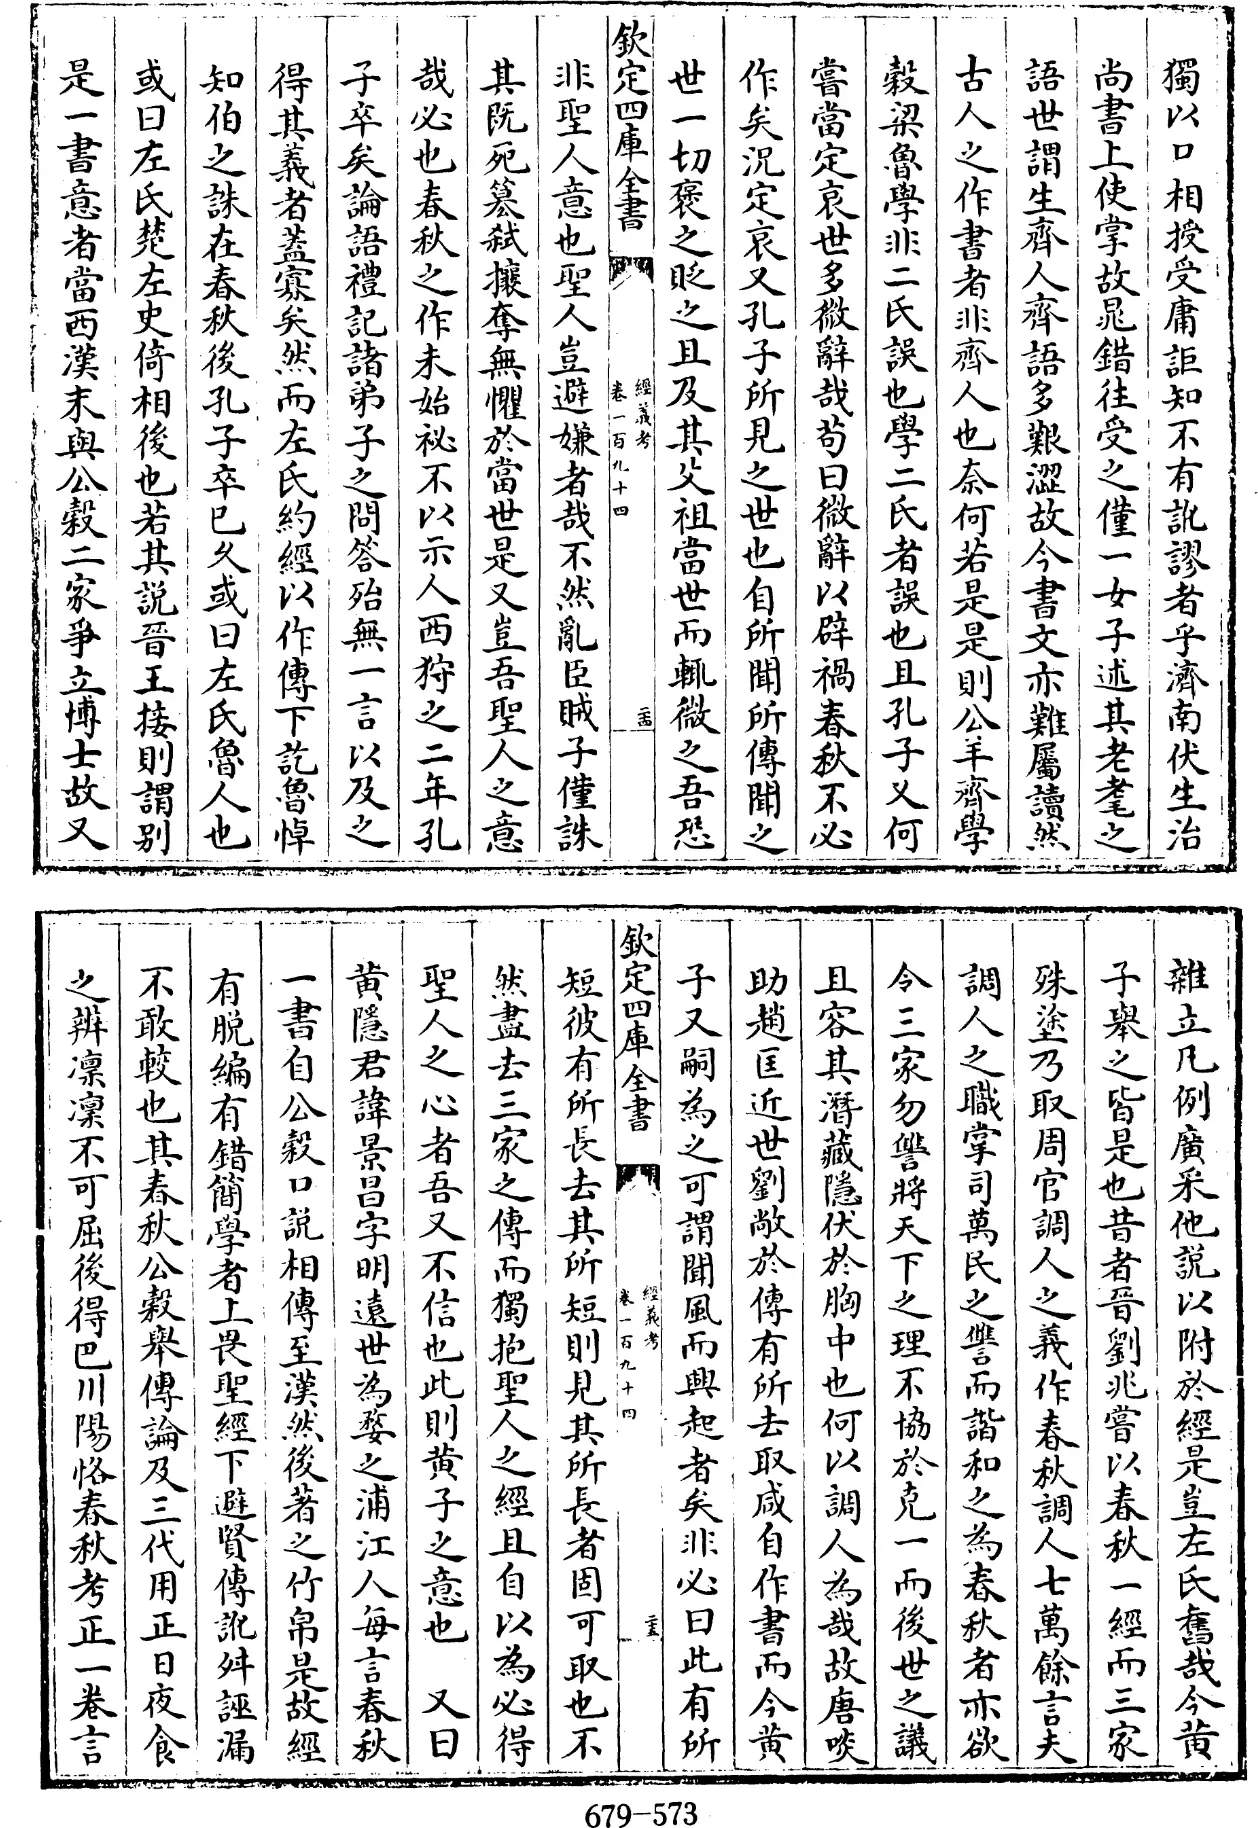 獨以口相授受庸詎知不有訛謬者乎濟南伏生治
尚書上使掌故晁錯往受之僅一女子述其老耄之
語世謂生齊人齊語多艱澀故今書文亦難屬讀然
古人之作書者非齊人也奈何若是是則公羊齊學
穀梁魯學非二氏誤也學二氏者誤也且孔子又何
嘗當定哀世多微辭哉苟曰微辭以辟禍春秋不必
作矣況定哀又孔子所見之世也自所聞所傳聞之
世一切褒之貶之且及其父祖當世而輒微之吾恐
欽定四庫全書
經義考
卷一百九十四
二十四
非聖人意也聖人豈避嫌者哉不然亂臣賊子僅誅
其既死篡弑攘奪無懼於當世是又豈吾聖人之意
哉必也春秋之作未始祕不以示人西狩之二年孔
子卒矣論語禮記諸弟子之問答殆無一言以及之
得其義者蓋寡矣然而左氏約經以作傳下訖魯悼
知伯之誅在春秋後孔子卒已久或曰左氏魯人也
或曰左氏楚左史倚相後也若其説晉王接則謂别
是一書意者當西漢末與公穀二家爭立博士故又
雜立凡例廣采他説以附於經是豈左氏舊哉今黄
子舉之皆是也昔者晉劉兆嘗以春秋一經而三家
殊塗乃取周官調人之義作春秋調人七萬餘言夫
調人之職掌司萬民之讐而諧和之為春秋者亦欲
令三家勿讐將天下之理不協於克一而後世之議
且容其潛藏隱伏於胸中也何以調人為哉故唐啖
助趙匡近世劉敞於傳有所去取咸自作書而今黄
子又嗣為之可謂聞風而興起者矣非必曰此有所
欽定四庫全書
經義考
卷一百九十四
二十五
短彼有所長去其所短則見其所長者固可取也不
然盡去三家之傳而獨抱聖人之經且自以為必得
聖人之心者吾又不信也此則黄子之意也　又曰
黄隱君諱景昌字明遠世為婺之浦江人每言春秋
一書自公穀口説相傳至漢然後著之竹帛是故經
有脱編有錯簡學者上畏聖經下避賢傳訛舛誣漏
不敢較也其春秋公穀舉傳論及三代用正日夜食
之辨凛凛不可屈後得巴川陽恪春秋考正一卷言
679-573